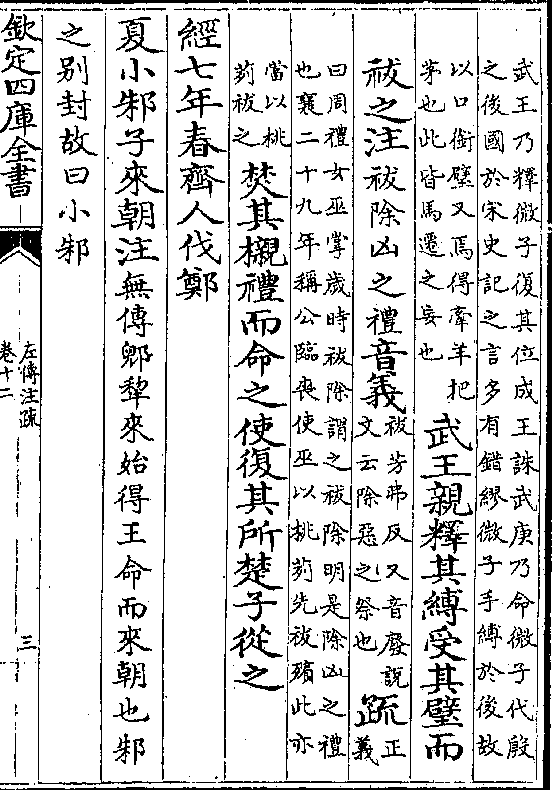 武王乃釋微子復其位成王誅武庚乃命微子代殷
之後國於宋史記之言多有錯繆微子手縛於後故
以口銜璧又焉得牽羊把
茅也此皆馬遷之妄也
武王親釋其縛受其璧而
祓之注祓除凶之禮音義
祓芳弗反又音廢說
文云除惡之祭也
疏
正
義
曰周禮女巫掌歲時祓除謂之祓除明是除凶之禮
也襄二十九年稱公臨喪使巫以桃茢先祓殯此亦
當以桃
茢祓之
焚其櫬禮而命之使復其所楚子從之
經七年春齊人伐鄭
夏小邾子來朝注無傳郳犂來始得王命而來朝也邾
之别封故曰小邾
欽定四庫全書
左傳注疏
卷十二
三